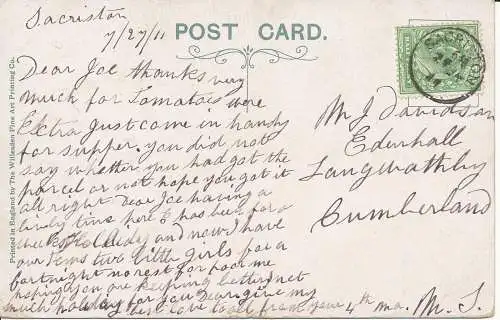 Sacriston
7/27/11
POST CARD.
Dear Joe thanks very
much for Tomatois were
Extra just come in handy
for supper. you did not
say whether you had got the
parcel or not hope you got it
all right Dear Joe having a
lively time here E has been for a
week and now I have
our two little girls for a
fortnight no rest for poor me
hoping you are keeping better not
much holiday for you Dear give my
best love to all from your 4th ma. M. S.
Mr J Davidson
Edenhall
Langwathby
Cumberland
SACRISTON
Printed in England by The Willesden Fine Art Printing Co.